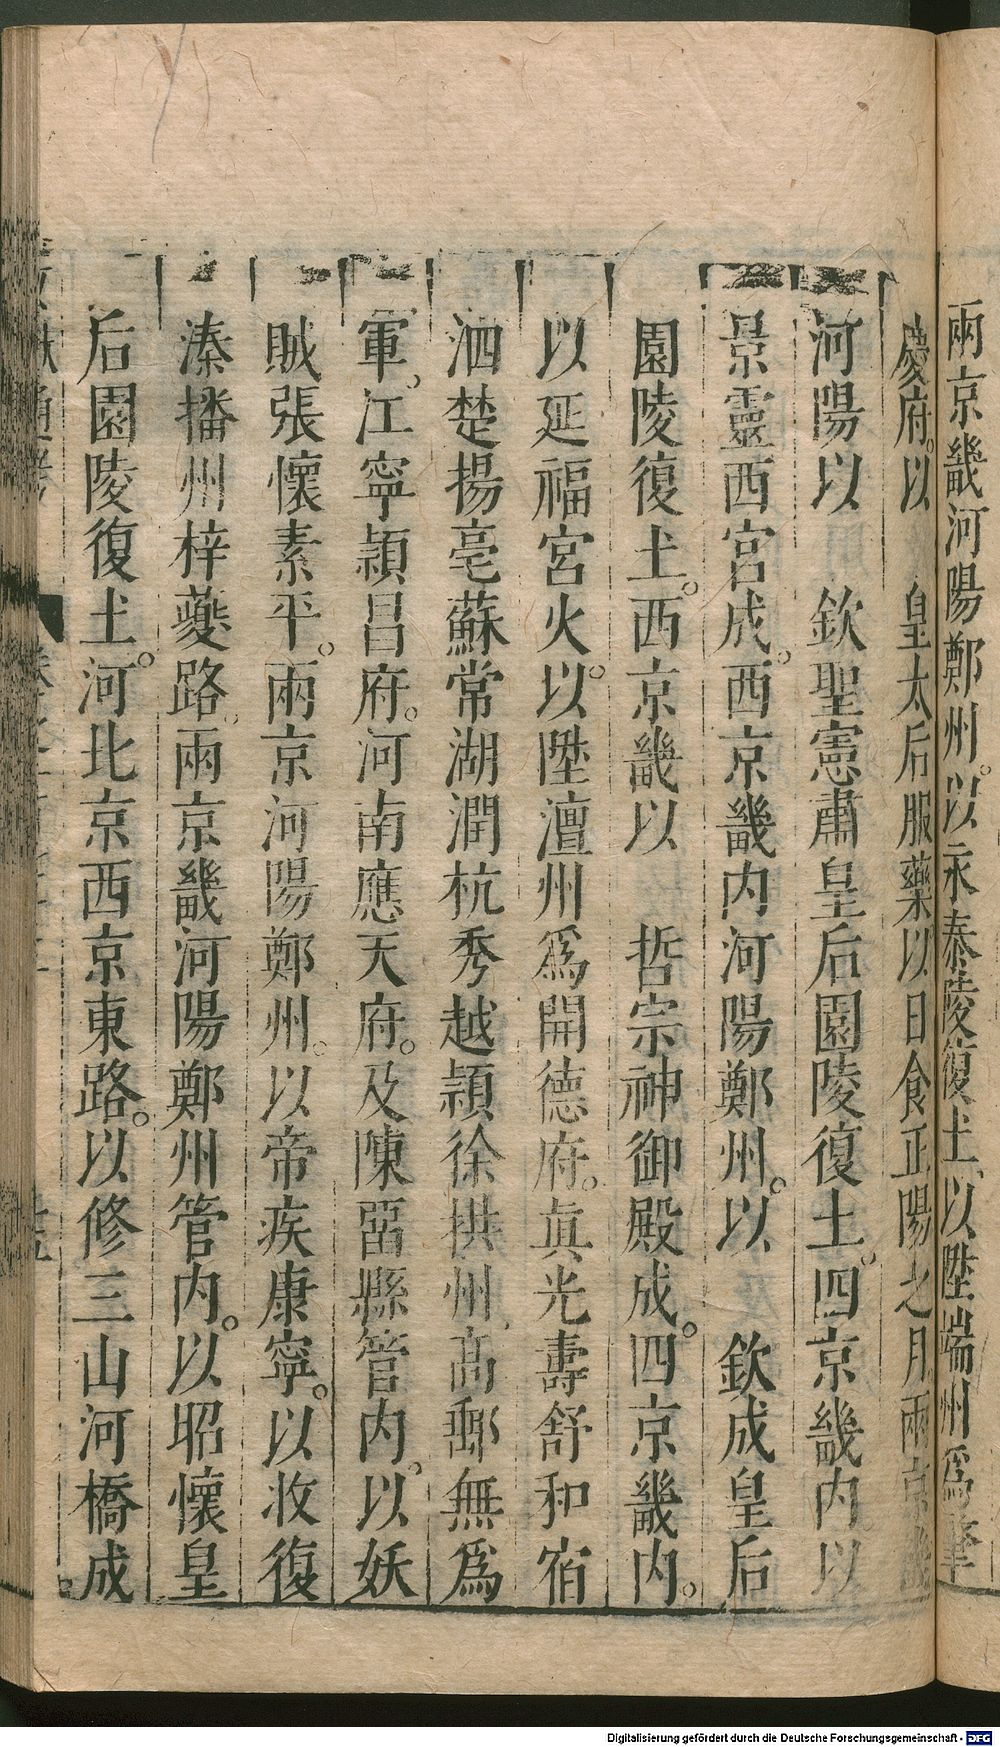 兩京畿河陽鄭州。以永泰陵復土、以陞端州爲肇
慶府。以　皇太后服藥以日食正陽之月兩京畿
河陽以　欽聖憲肅皇后園陵復土。四京畿內。以
景靈西宮成。西京畿內河陽鄭州。以　欽成皇后
園陵復土。西京畿以　哲宗神御殿成。四京畿內。
以延福宮火。以陞澶州爲開德府。眞光壽舒和宿
泗楚揚亳蘇常湖潤杭秀越穎徐拱州、高郵無爲
軍。江寧潁昌府。河南應天府。及陳畱縣管內。以妖
賊張懷素平。兩京河陽鄭州。以帝疾康寧。以收復
溱播州梓夔路。兩京畿河陽鄭州管內。以昭懷皇
后園陵復土。河北京西京東路。以修三山河橋成
Digitalisierung gefördert durch die Deutsche Forschungsgemeinschaft - DFG